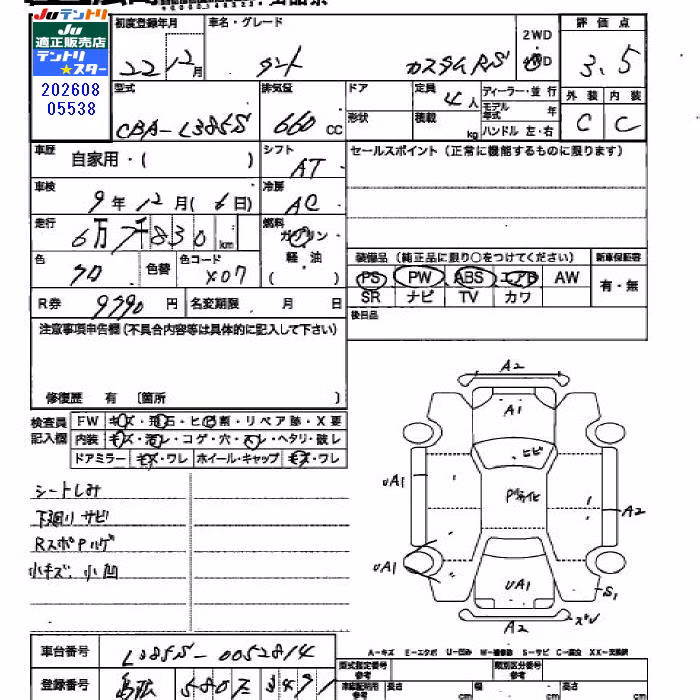 Juテントリ
Ju
適正販売店
テントリ
★スター
202608
05538
初度登録年月
22 12月
車名・グレード
タント カスタムRS
2WD
評価点
3.5
型式
CBA-L385S
排気量
660 CC
ドア
形状
定員
4人
積載
kg
ディーラー・並行
モデル年式 年
ハンドル 左・右
外装 内装
C C
車歴
自家用・( )
シフト
AT
セールスポイント(正常に機能するものに限ります)
車検
9年12月(6日)
冷房
AC
走行
6万7千830km
燃料
ガソリン
軽油
( )
色
クロ
色替
色コード
X07
装備品 (純正品に限り○をつけてください)
新車保証書
PS PW ABS エアB AW
有・無
SR ナビ TV カワ
R券 9790円
名変期限 月 日
後日品
注意事項申告欄(不具合内容等は具体的に記入して下さい)
修復歴 有 〔箇所 〕
検査員
記入欄
FW キズ・飛石・ヒビ割・リペア跡・X要
内装 キズ・汚レ・コゲ・穴・スレ・ヘタリ・破レ
ドアミラー キズ・ワレ ホイール・キャップ キズ・ワレ
シートしみ
下廻りサビ
RスポPハゲ
小キズ、小凹
A2
A1
ヒビ
UA1
P劣化
A2
UA1
UA1
S1
ズレ
A2
A-キズ E-エクボ U-凹み W-補修跡 S-サビ C-腐食 XX-交換済
車台番号
L385S-0052814
登録番号
型式指定番号
参考
類別区分番号
参考
車庫証明用
参考
長さ cm
幅 cm
高さ cm